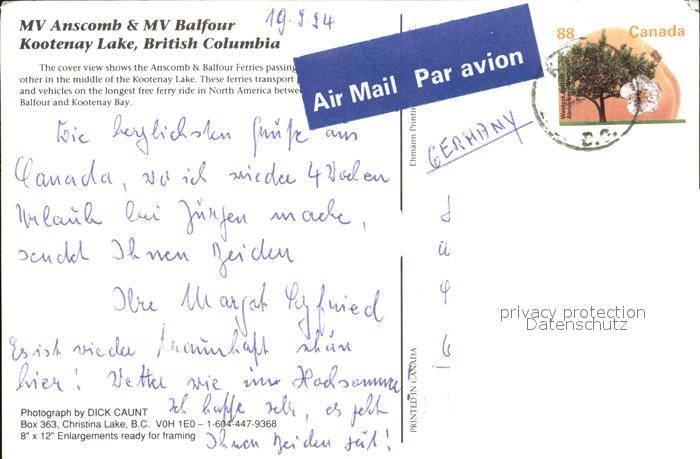 MV Anscomb & MV Balfour
Kootenay Lake, British Columbia
19.9.94
The cover view shows the Anscomb & Balfour Ferries passing
other in the middle of the Kootenay Lake. These ferries transport
and vehicles on the longest free ferry ride in North America betwe
Balfour and Kootenay Bay.
Air Mail Par avion
88 Canada
GERMANY
Die herzlichsten Grüße aus
Canada, wo ich wieder 4 Wochen
Urlaub bei Jürgen mache,
sendet Ihnen Beiden
Ihre Margot
Es ist wieder traumhaft schön
hier! Wetter wie im Hochsommer
Ich hoffe sehr, es geht
Ihnen Beiden gut!
Photograph by DICK CAUNT
Box 363, Christina Lake, B.C. V0H 1E0 – 1-604-447-9368
8" x 12" Enlargements ready for framing
Ehmann Printin
PRINTED IN CANADA
privacy protection
Datenschutz